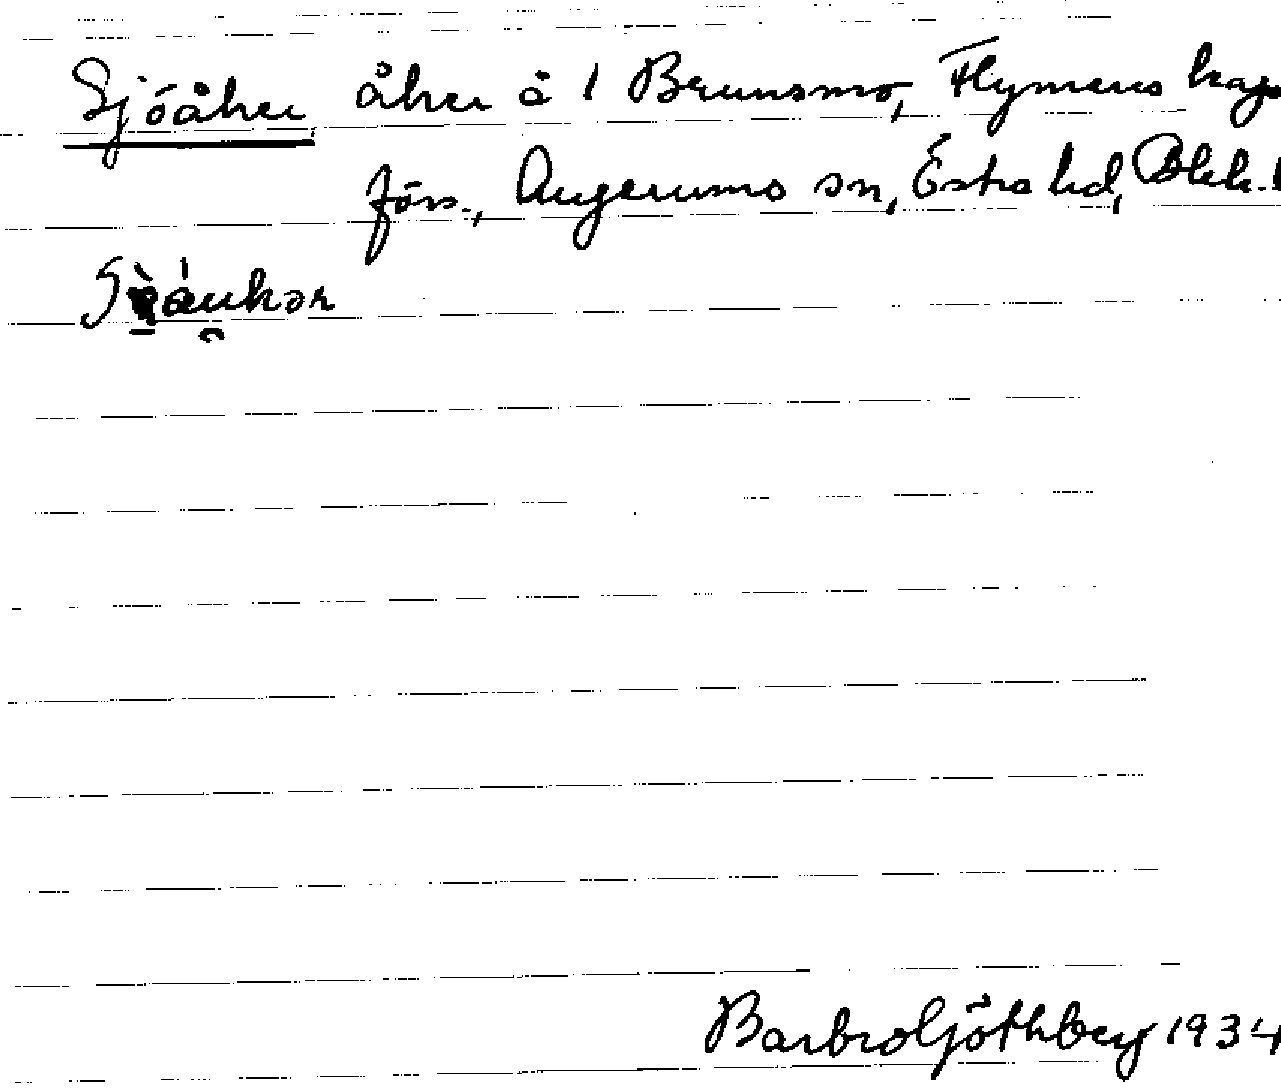 Sjöåker åker å 1 Brunsmo, Flymens kap
förs., Augerums sn, Östra hd, Blek. l
Barbro Götlberg 1934